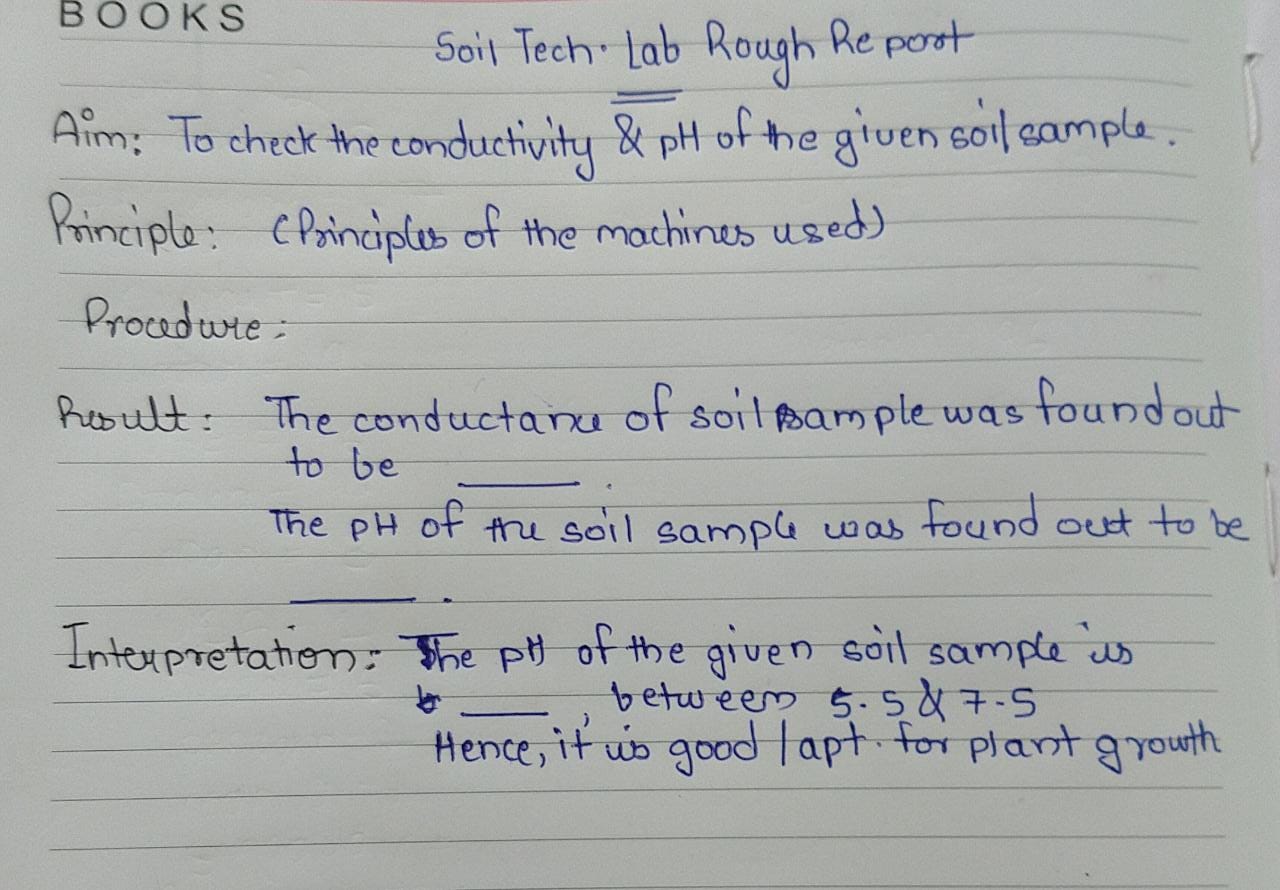 BOOKS
Soil Tech. Lab Rough Report
Aim: To check the conductivity & pH of the given soil sample.
Principle: (Principles of the machines used)
Procedure:
Result: The conductance of soil sample was found out
to be ______.
The pH of the soil sample was found out to be
______.
Interpretation: The pH of the given soil sample is
______, between 5.5 & 7.5
Hence, it is good / apt. for plant growth